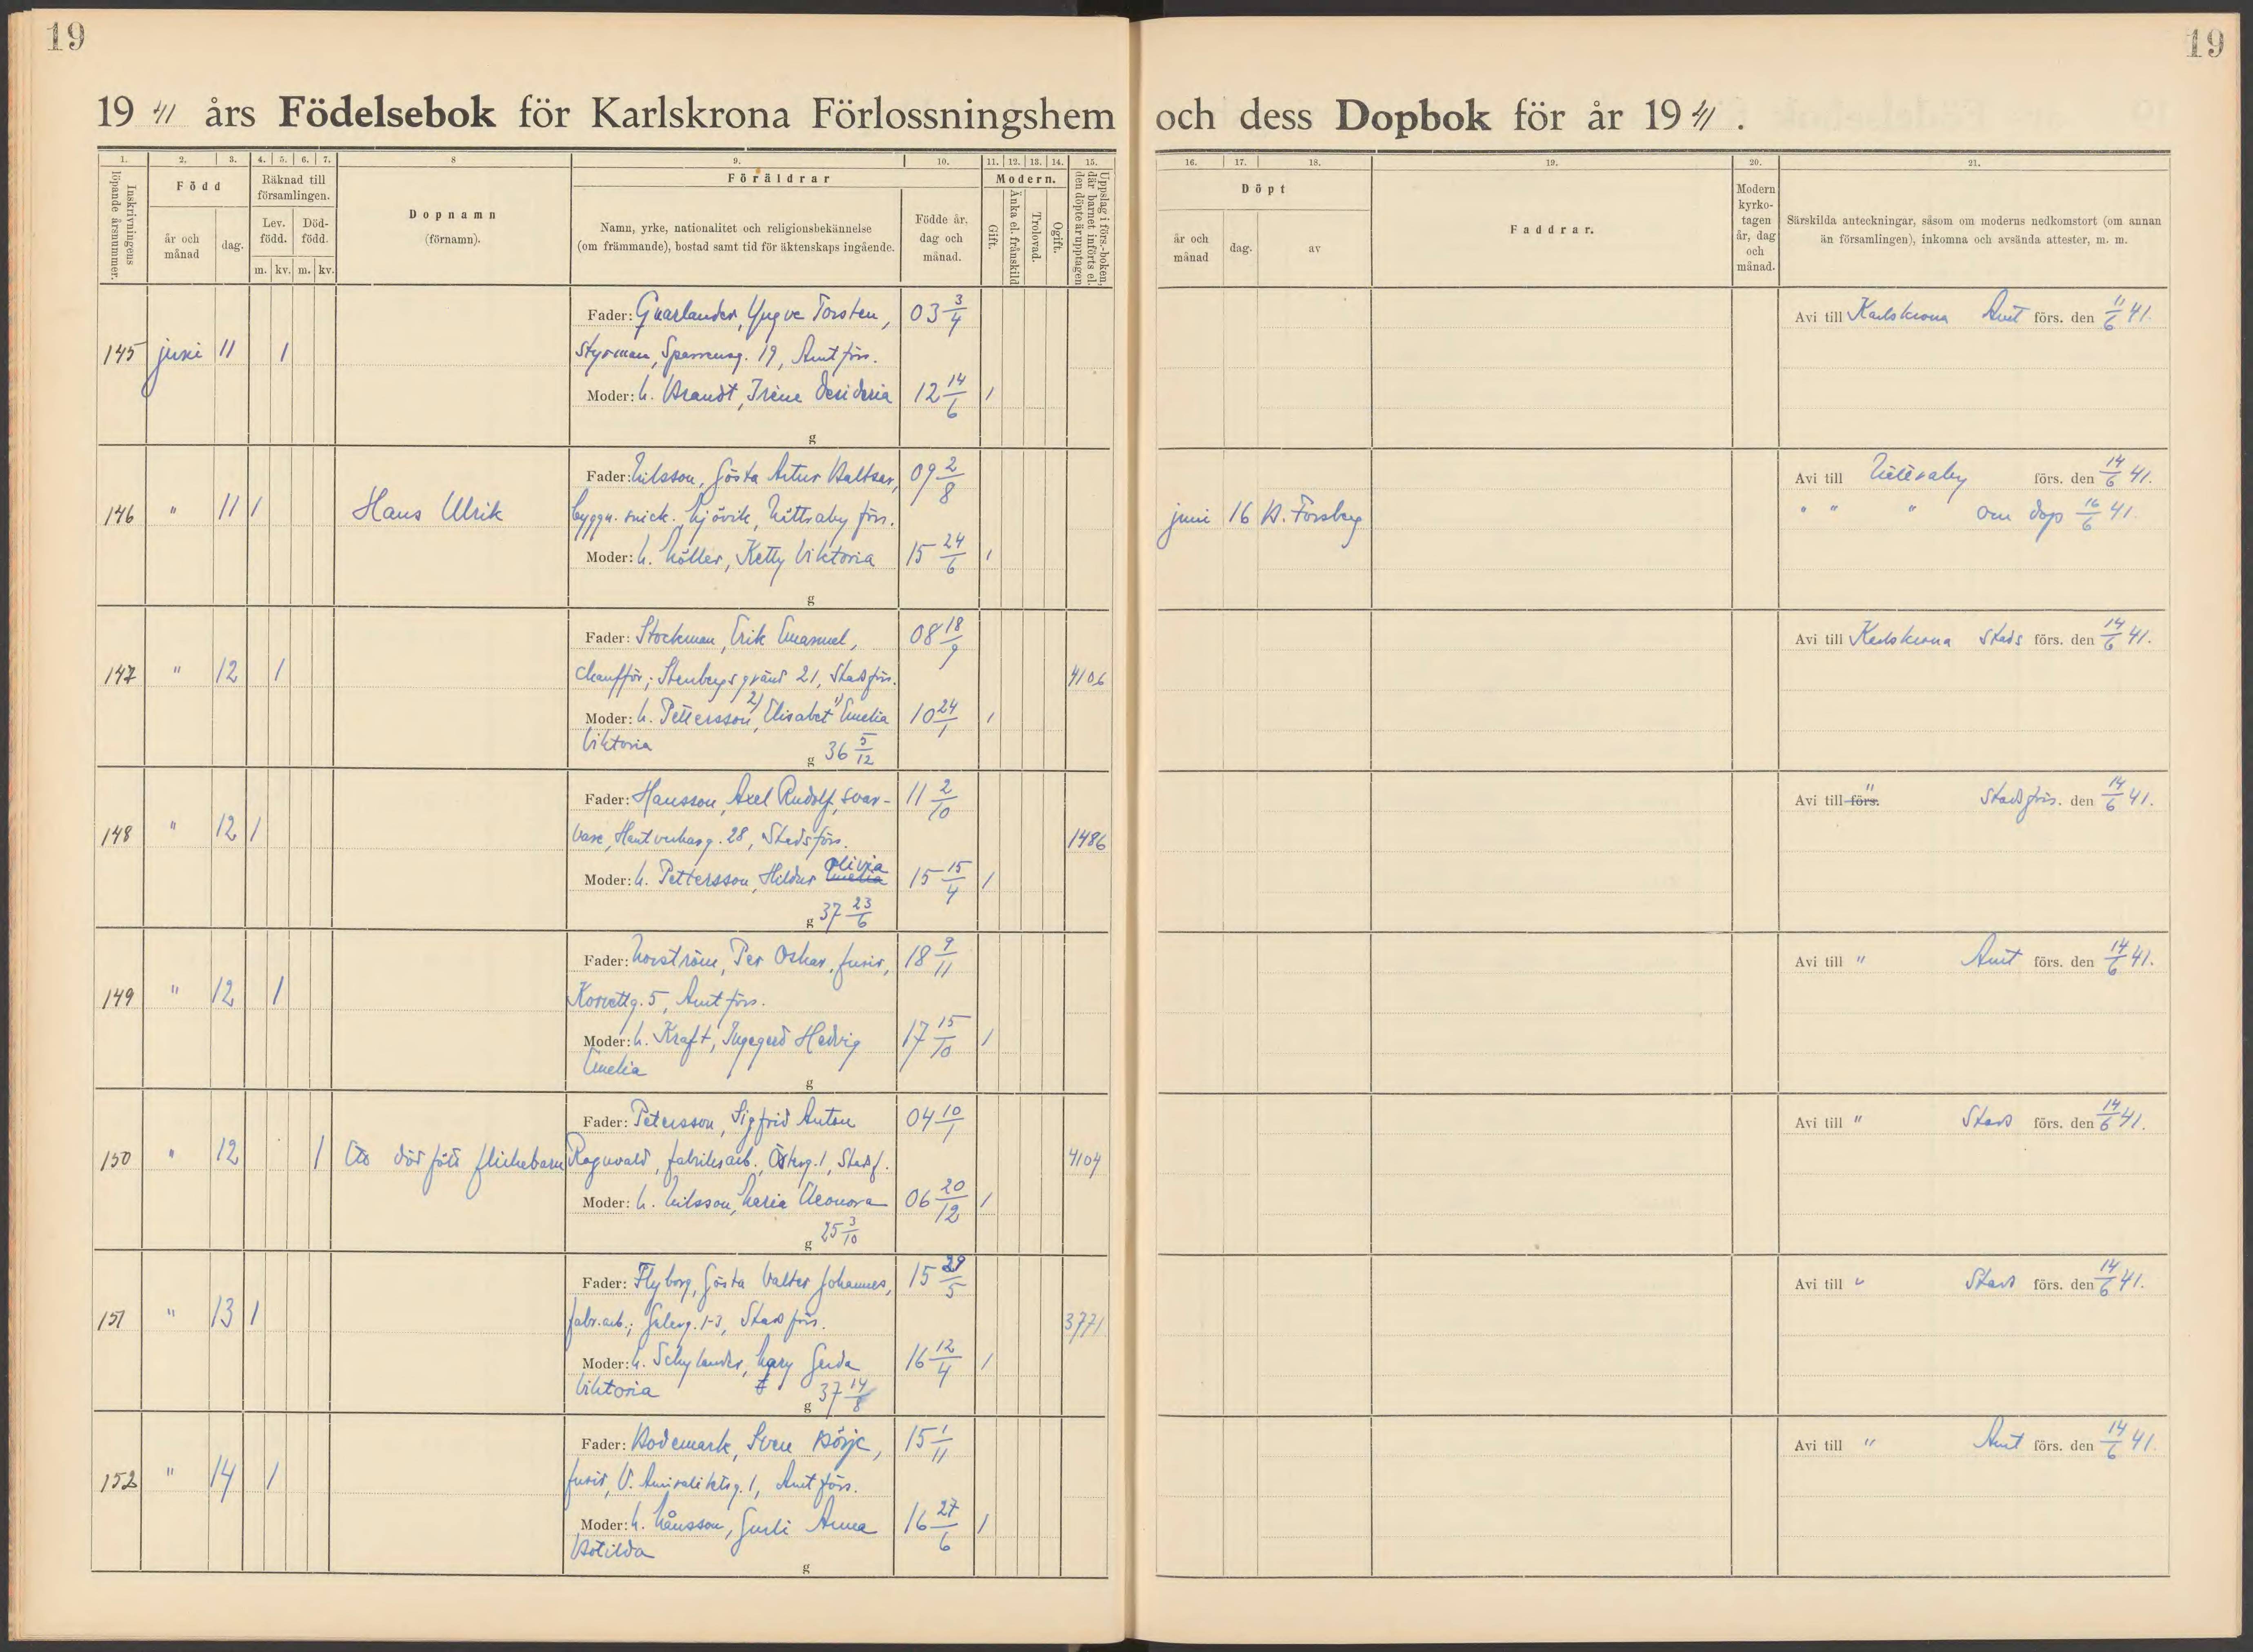 19
19
19 41 års Födelsebok för Karlskrona Förlossningshem
och dess Dopbok för år 19 41.
1. 2. 3. 4. 5. 6. 7. 8 9. 10. 11. 12. 13. 14. 15.
16. 17. 18. 19. 20. 21.
Inskrivningens löpande årsnummer.
Född
år och månad
dag.
Räknad till församlingen.
Lev. född.
Död-född.
m. kv. m. kv.
Dopnamn
(förnamn).
Föräldrar
Namn, yrke, nationalitet och religionsbekännelse
(om främmande), bostad samt tid för äktenskaps ingående.
Födde år, dag och månad.
Modern.
Gift.
Änka el. frånskild
Trolovad.
Ogift.
Uppslag i förs.-boken, där barnet införts el. den döpte är upptagen
Döpt
år och månad
dag.
av
Faddrar.
Modern kyrko-tagen år, dag och månad.
Särskilda anteckningar, såsom om moderns nedkomstort (om annan
än församlingen), inkomna och avsända attester, m. m.
Fader: Yngve Torsten, 03 3/4
145 juni 11 1 Styrman, Sparreg. 19, Amt förs.
Moder: h. Brandt, Irène Desideria 12 14/6 1
g
Avi till Karlskrona Amt förs. den 11/6 41.
Fader: Nilsson, Gösta Artur Baltsar, 09 2/8
146 " 11 1 Hans Ulrik byggn. snick. Mjövik, Nättraby förs.
Moder: h. Möller, Ketty Viktoria 15 24/6 1
g
juni 16 B. Forsberg
Avi till Nättraby förs. den 14/6 41.
" " " om dop 16/6 41.
Fader: Stockman, Erik Emanuel, 08 18/9
147 " 12 1 chaufför; Stenbergsgränd 21, Stadsförs. 4106
Moder: h. Pettersson, 2) Elisabet 1) Emelia 10 24/1 1
Viktoria
g 36 5/12
Avi till Karlskrona Stads förs. den 14/6 41.
Fader: Hansson, Axel Rudolf, svar- 11 2/10
148 " 12 1 vare, Hantverkareg. 28, Stadsförs. 1486
Moder: h. Pettersson, Hildur Emelia Olivia 15 15/4 1
g 37 23/6
Avi till förs. " Stadsförs. den 14/6 41.
Fader: Norström, Per Oskar, furir, 18 9/11
149 " 12 1 Korvettg. 5, Amt förs.
Moder: h. Kraft, Ingegerd Hedvig 17 15/10 1
Emelia
g
Avi till " Amt förs. den 14/6 41.
Fader: Petersson, Sigfrid Anton 04 10/1
150 " 12 1 Ett dödfött flickebarn Ragnvald, fabriksarb., Österg. 1, Stadsf. 4104
Moder: h. Nilsson, Maria Eleonora 06 20/12 1
g 25 3/10
Avi till " Stads förs. den 14/6 41.
Fader: Flyborg, Gösta Valter Johannes, 15 29/5
151 " 13 1 fabr.arb.; Galerg. 1-3, Stads förs. 3771
Moder: h. Schylander, Mary Gerda 16 12/4 1
Viktoria
g 37 14/8
Avi till " Stads förs. den 14/6 41.
Fader: Bodemark, Sven Börje, 15 1/11
152 " 14 1 furir, V. Amiralitetsg. 1, Amt förs.
Moder: h. Månsson, Gurli Anna 16 27/6 1
Botilda
g
Avi till " Amt förs. den 14/6 41.